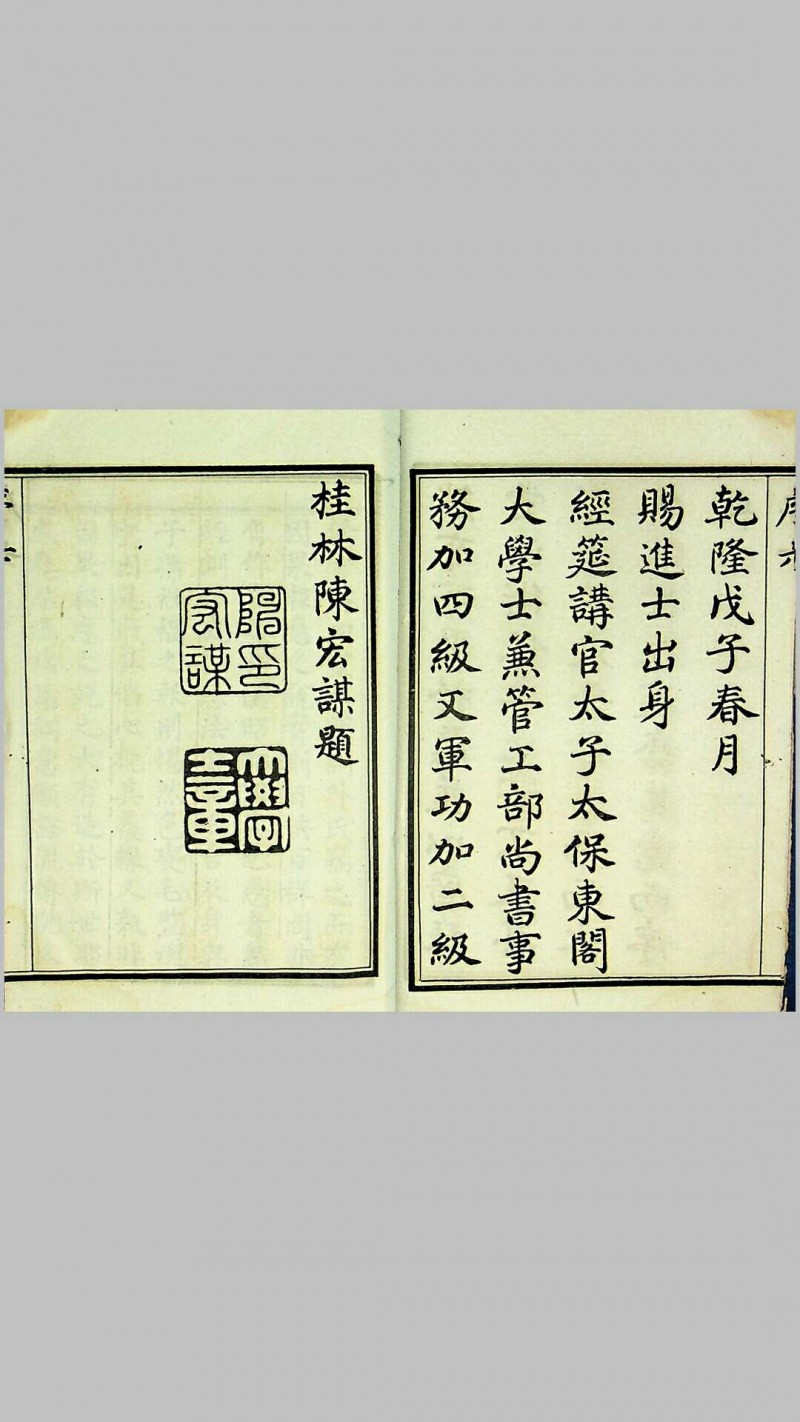 乾隆戊子春月
賜進士出身
經筵講官太子太保東閣
大學士兼管工部尚書事
務加四級又軍功加二級
桂林陳宏謀題
陳印
宏謀